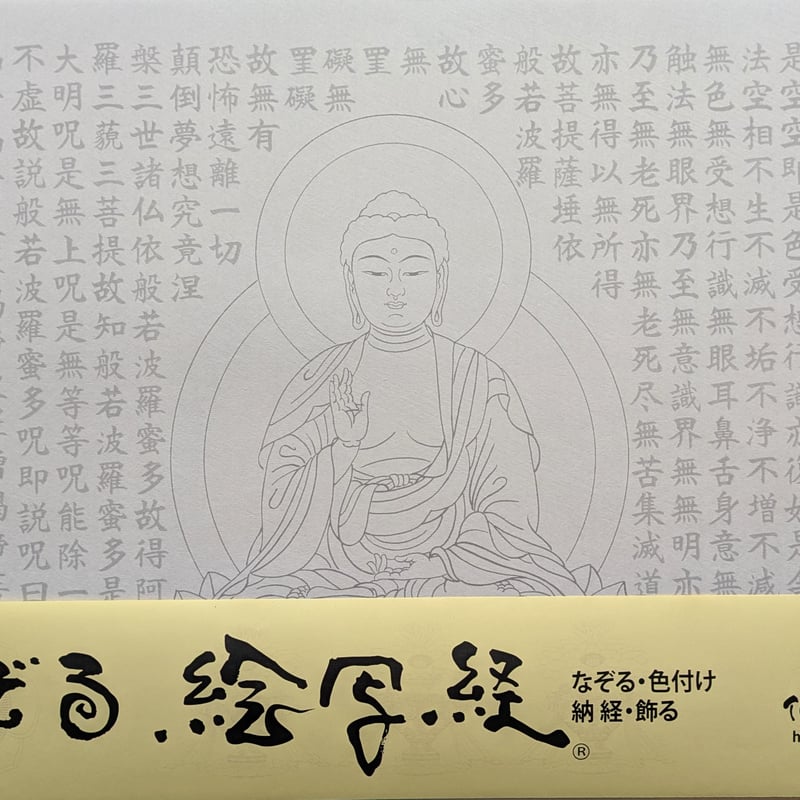 是空空即是色受想行識亦復如是舎
法空相不生不滅不垢不浄不増不減
無色無受想行識無眼耳鼻舌身意無
触法無眼界乃至無意識界無無明亦
乃至無老死亦無老死尽無苦集滅道
亦無得以無所得
故菩提薩埵依
般若波羅
蜜多
故心
無
罣
礙無
罣礙
故無有
恐怖遠離一切
顛倒夢想究竟涅
槃三世諸仏依般若波羅蜜多故得阿
羅三藐三菩提故知般若波羅蜜多是
大明呪是無上呪是無等等呪能除一
不虚故説般若波羅蜜多呪即説呪曰
ぞる・絵写経®
なぞる・色付け
納経・飾る